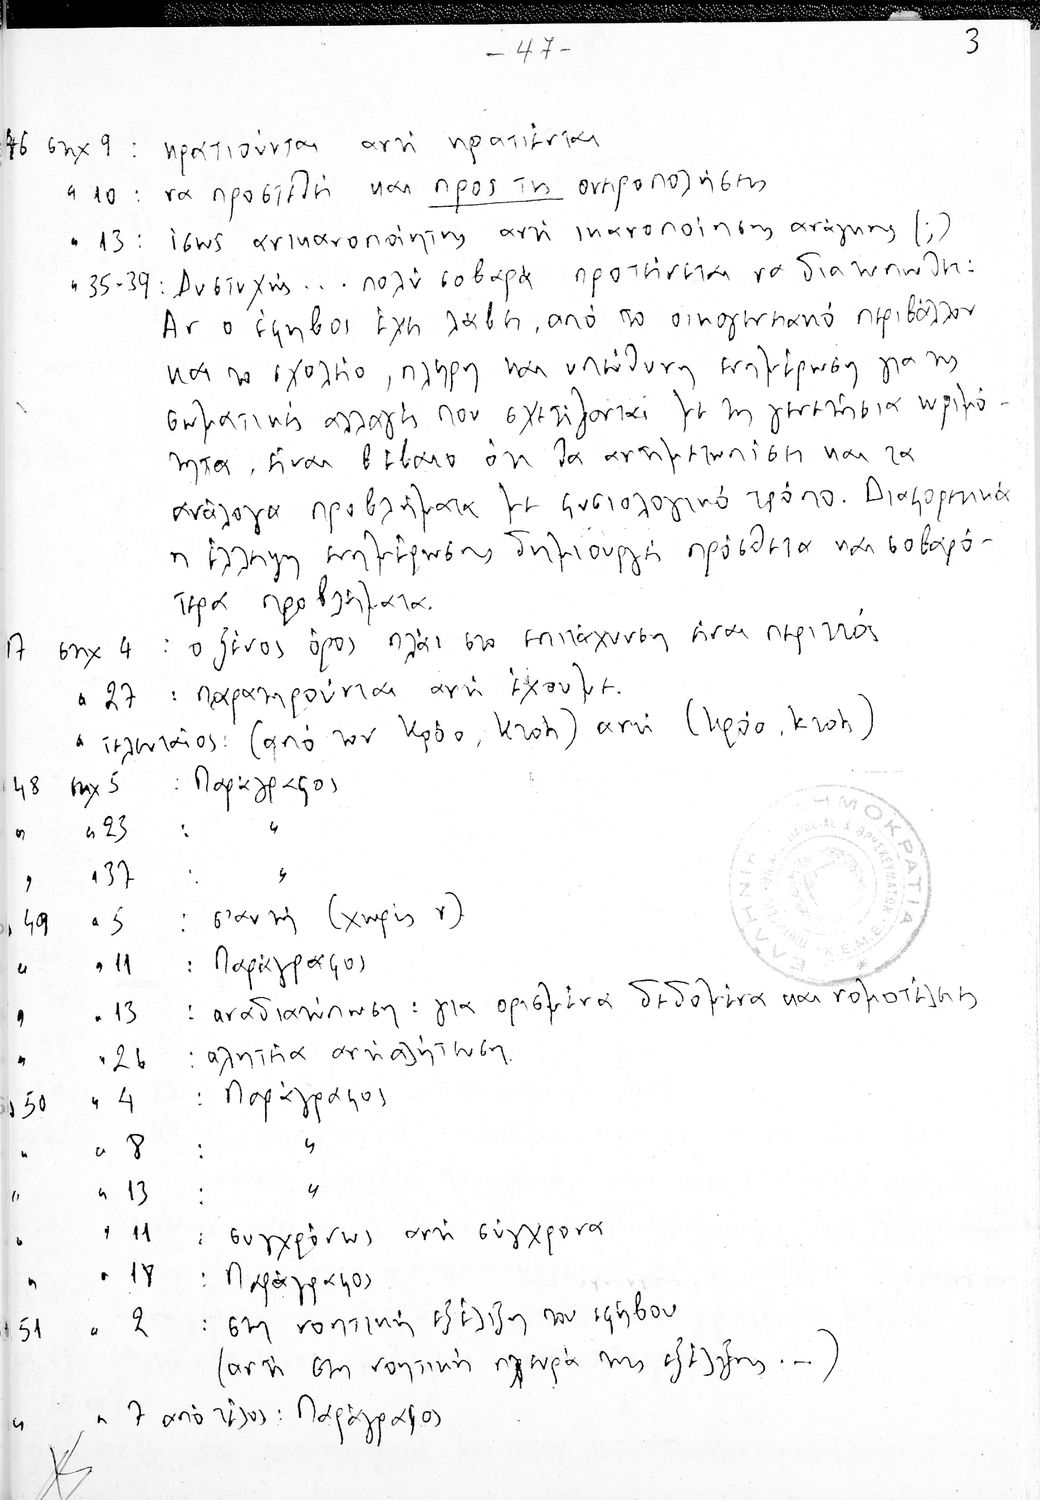 - 47 -
3
46 στιχ 9 : κρατιούνται αντί κρατιένται
" 10 : να προστεθεί και προς της ονειροπολήσεις
" 13 : ίσως ανικανοποίητης αντί ικανοποίησης ανάγκης (;)
" 35-39 : Δυστυχώς ... πολύ σοβαρά προτείνεται να διατυπωθεί:
Αν ο έφηβος έχει λάβει, από το οικογενειακό περιβάλλον
και το σχολείο, πλήρη και υπεύθυνη ενημέρωση για τις
σωματικές αλλαγές που σχετίζονται με τη γενετήσια ωριμό-
τητα, είναι βέβαιο ότι θα αντιμετωπίσει και τα
ανάλογα προβλήματα με φυσιολογικό τρόπο. Διαφορετικά
η έλλειψη ενημέρωσης δημιουργεί πρόσθετα και σοβαρό-
τερα προβλήματα.
17 στιχ 4 : ο ξένος όρος πλάι στο επιτάχυνση είναι περιττός
" 27 : παρατηρούνται αντί έχουμε.
" τελευταίος: (από τον Κρόο, Κτοή) αντί (Κρόο, Κτοή)
48 στιχ 5 : Παράγραφος
" " 23 : "
" " 37 : "
49 " 5 : σ' αυτή (χωρίς ν)
" " 11 : Παράγραφος
" " 13 : αναδιατύπωση : για ορισμένα δεδομένα και νομοτέλειες
" " 26 : αλητεία αντί αλήτευση.
50 " 4 : Παράγραφος
" " 8 : "
" " 13 : "
" " 11 : συγχρόνως αντί σύγχρονα
" " 18 : Παράγραφος
51 " 2 : στη νοητική εξέλιξη του εφήβου
(αντί στη νοητική πλευρά της εξέλιξης ...)
" " 7 από τέλος : Παράγραφος
ΕΛΛΗΝΙΚΗ ΔΗΜΟΚΡΑΤΙΑ
ΠΑΙΔΕΙΑΣ & ΘΡΗΣΚΕΥΜΑΤΩΝ
Κ.Ε.Μ.Ε.